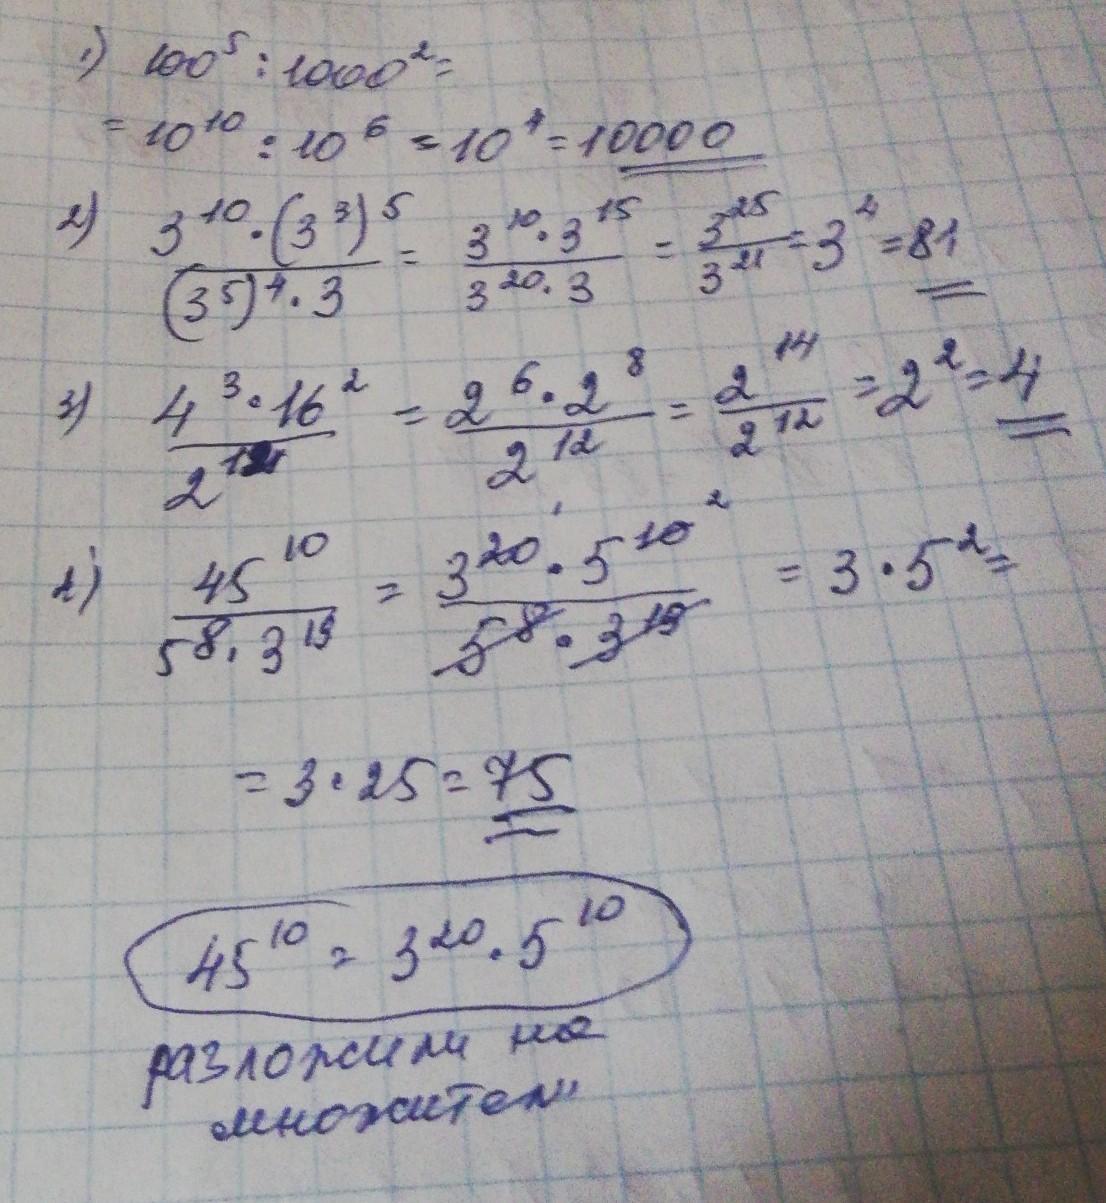 1) 100⁵ : 1000² =
= 10¹⁰ : 10⁶ = 10⁴ = 10000
2) (3¹⁰ · (3³)⁵) / ((3⁵)⁴ · 3) = (3¹⁰ · 3¹⁵) / (3²⁰ · 3) = 3²⁵ / 3²¹ = 3⁴ = 81
3) (4³ · 16²) / 2¹² = (2⁶ · 2⁸) / 2¹² = 2¹⁴ / 2¹² = 2² = 4
45¹⁰ / (5⁸ · 3¹⁹) = (3²⁰ · 5¹⁰) / (5⁸ · 3¹⁹) = 3 · 5² =
= 3 · 25 = 75
45¹⁰ = 3²⁰ · 5¹⁰
разложили на
множители